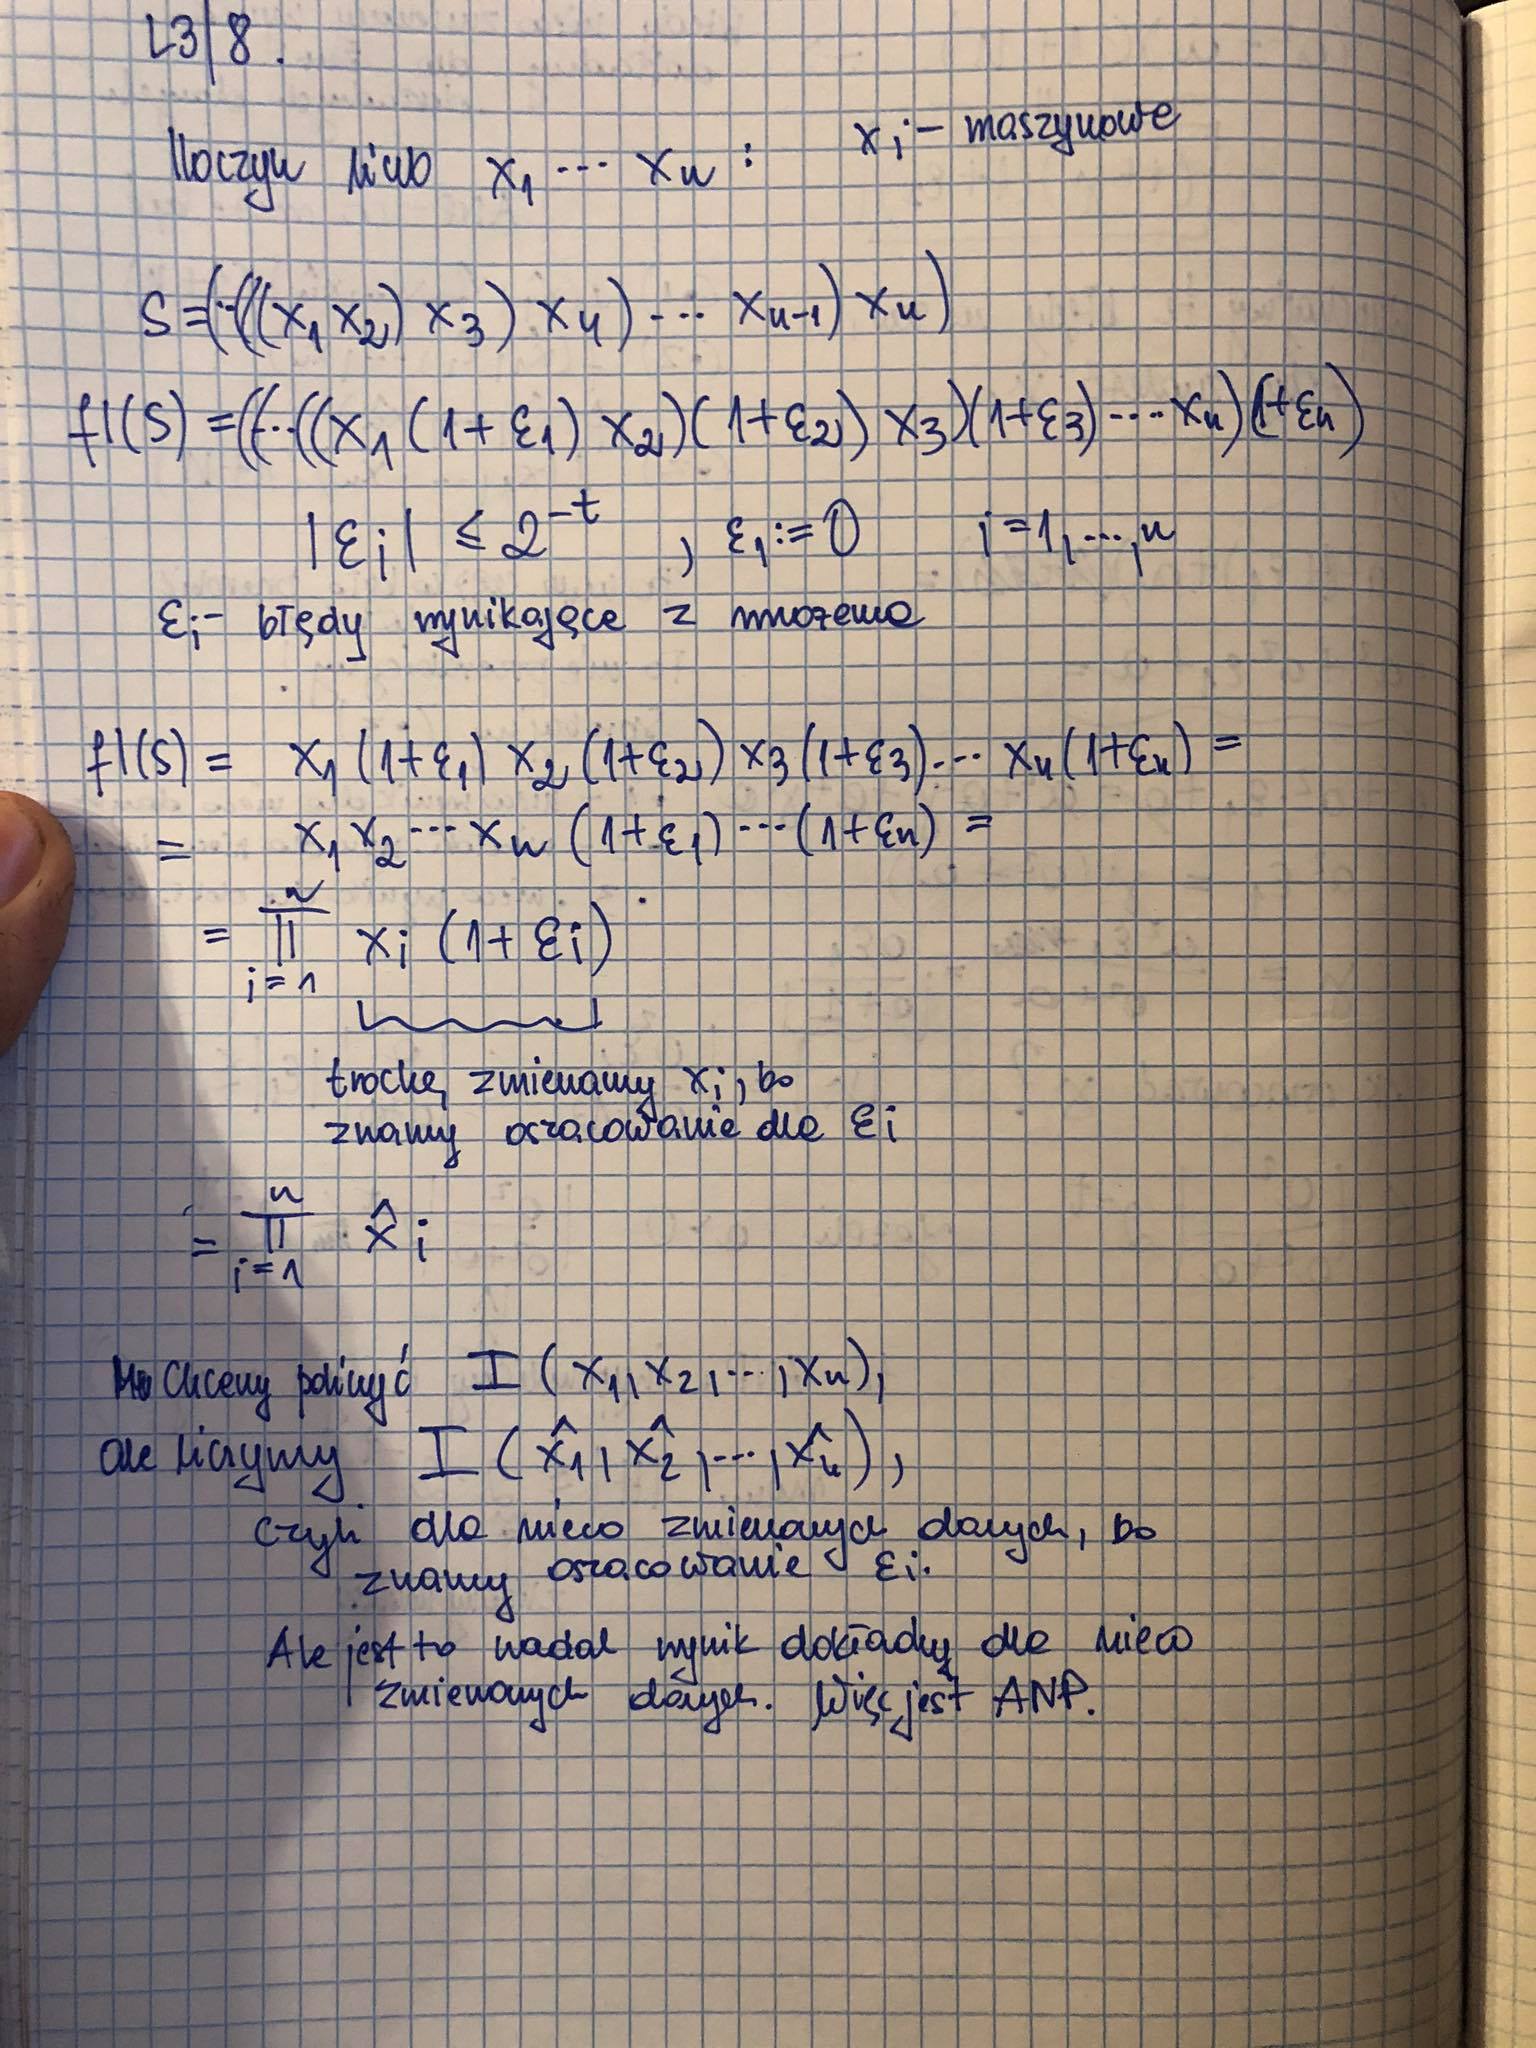 L3/8.
Iloczyn liczb x₁ ... xₙ : xᵢ - maszynowe
S = (··(((x₁ x₂) x₃) x₄) ... xₙ₋₁) xₙ)
fl(S) = ((···((x₁ (1+ε₁) x₂)(1+ε₂) x₃)(1+ε₃) ... xₙ)(1+εₙ)
|εᵢ| ≤ 2⁻ᵗ , ε₁ := 0 i=1,...,n
εᵢ - błędy wynikające z mnożenia
fl(S) = x₁ (1+ε₁) x₂ (1+ε₂) x₃ (1+ε₃) ... xₙ (1+εₙ) =
= x₁ x₂ ... xₙ (1+ε₁) ... (1+εₙ) =
= ∏ᵢ₌₁ⁿ xᵢ (1+εᵢ)
trochę zmieniamy xᵢ, bo
znamy oszacowanie dla εᵢ
= ∏ᵢ₌₁ⁿ x̂ᵢ
Chcemy policzyć I (x₁, x₂, ..., xₙ),
ale liczymy I (x̂₁, x̂₂, ..., x̂ₙ),
czyli dla nieco zmienionych danych, bo
znamy oszacowanie εᵢ.
Ale jest to nadal wynik dokładny dla nieco
zmienionych danych. Więc jest ANP.